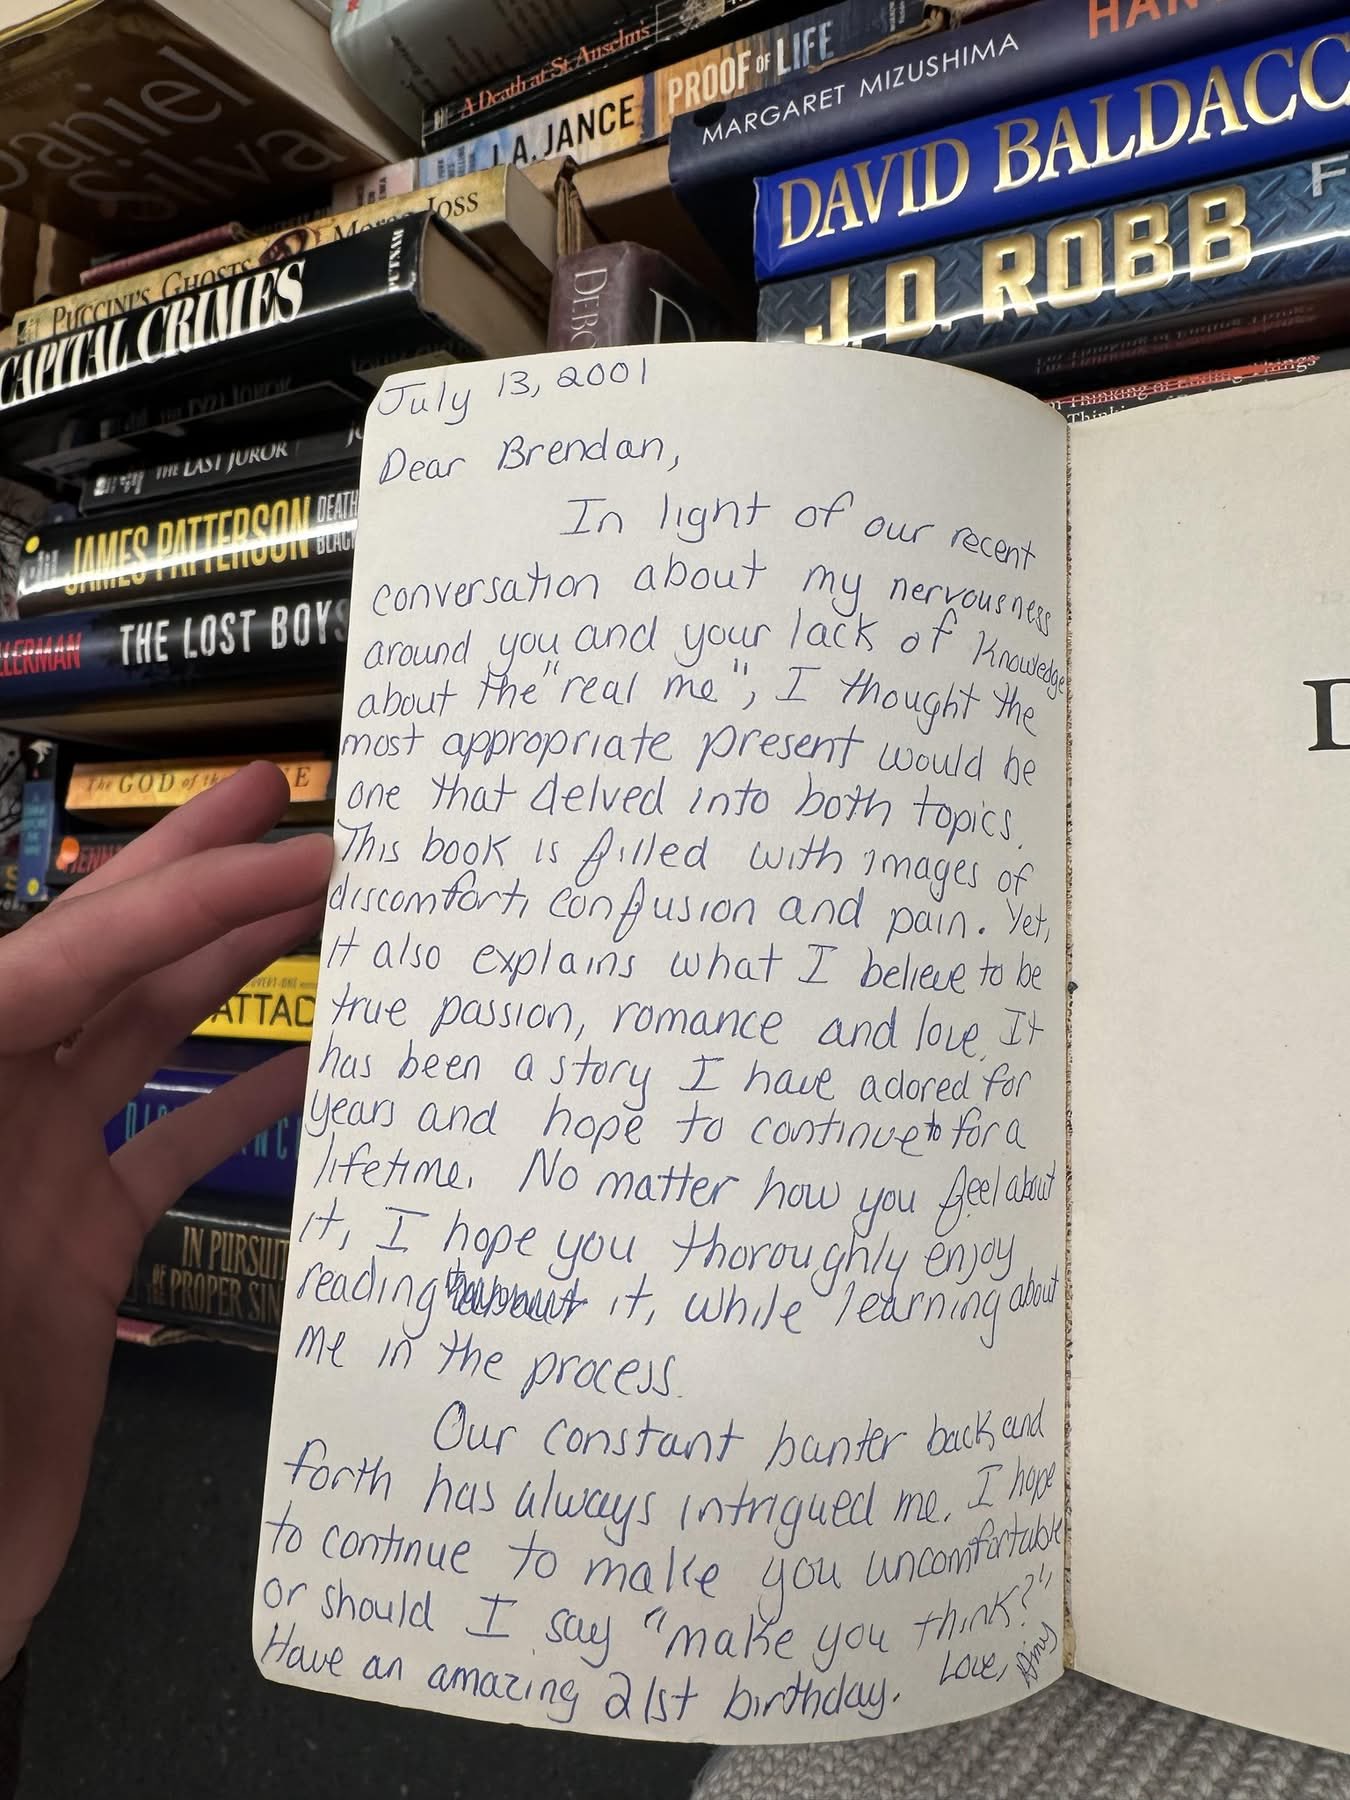 Daniel
Silva
A Death at St. Anselm's
J.A. JANCE
PROOF OF LIFE
MARGARET MIZUSHIMA
HAN
DAVID BALDACC
J.D. ROBB
F
PUCCINI'S GHOSTS
Morag Joss
CAPITAL CRIMES
PUTNAM
THE LAST JUROR
JAMES PATTERSON
DEATH
BLAC
LLERMAN
THE LOST BOYS
The GOD of the
ATTAC
IN PURSUIT
OF THE PROPER SIN
July 13, 2001
Dear Brendan,
In light of our recent
conversation about my nervousness
around you and your lack of knowledge
about the "real me", I thought the
most appropriate present would be
one that delved into both topics.
This book is filled with images of
discomfort, confusion and pain. Yet,
it also explains what I believe to be
true passion, romance and love. It
has been a story I have adored for
years and hope to continue to for a
lifetime. No matter how you feel about
it, I hope you thoroughly enjoy
reading it, while learning about
me in the process.
Our constant banter back and
forth has always intrigued me. I hope
to continue to make you uncomfortable
or should I say "make you think?"
Have an amazing 21st birthday. Love, Amy
D